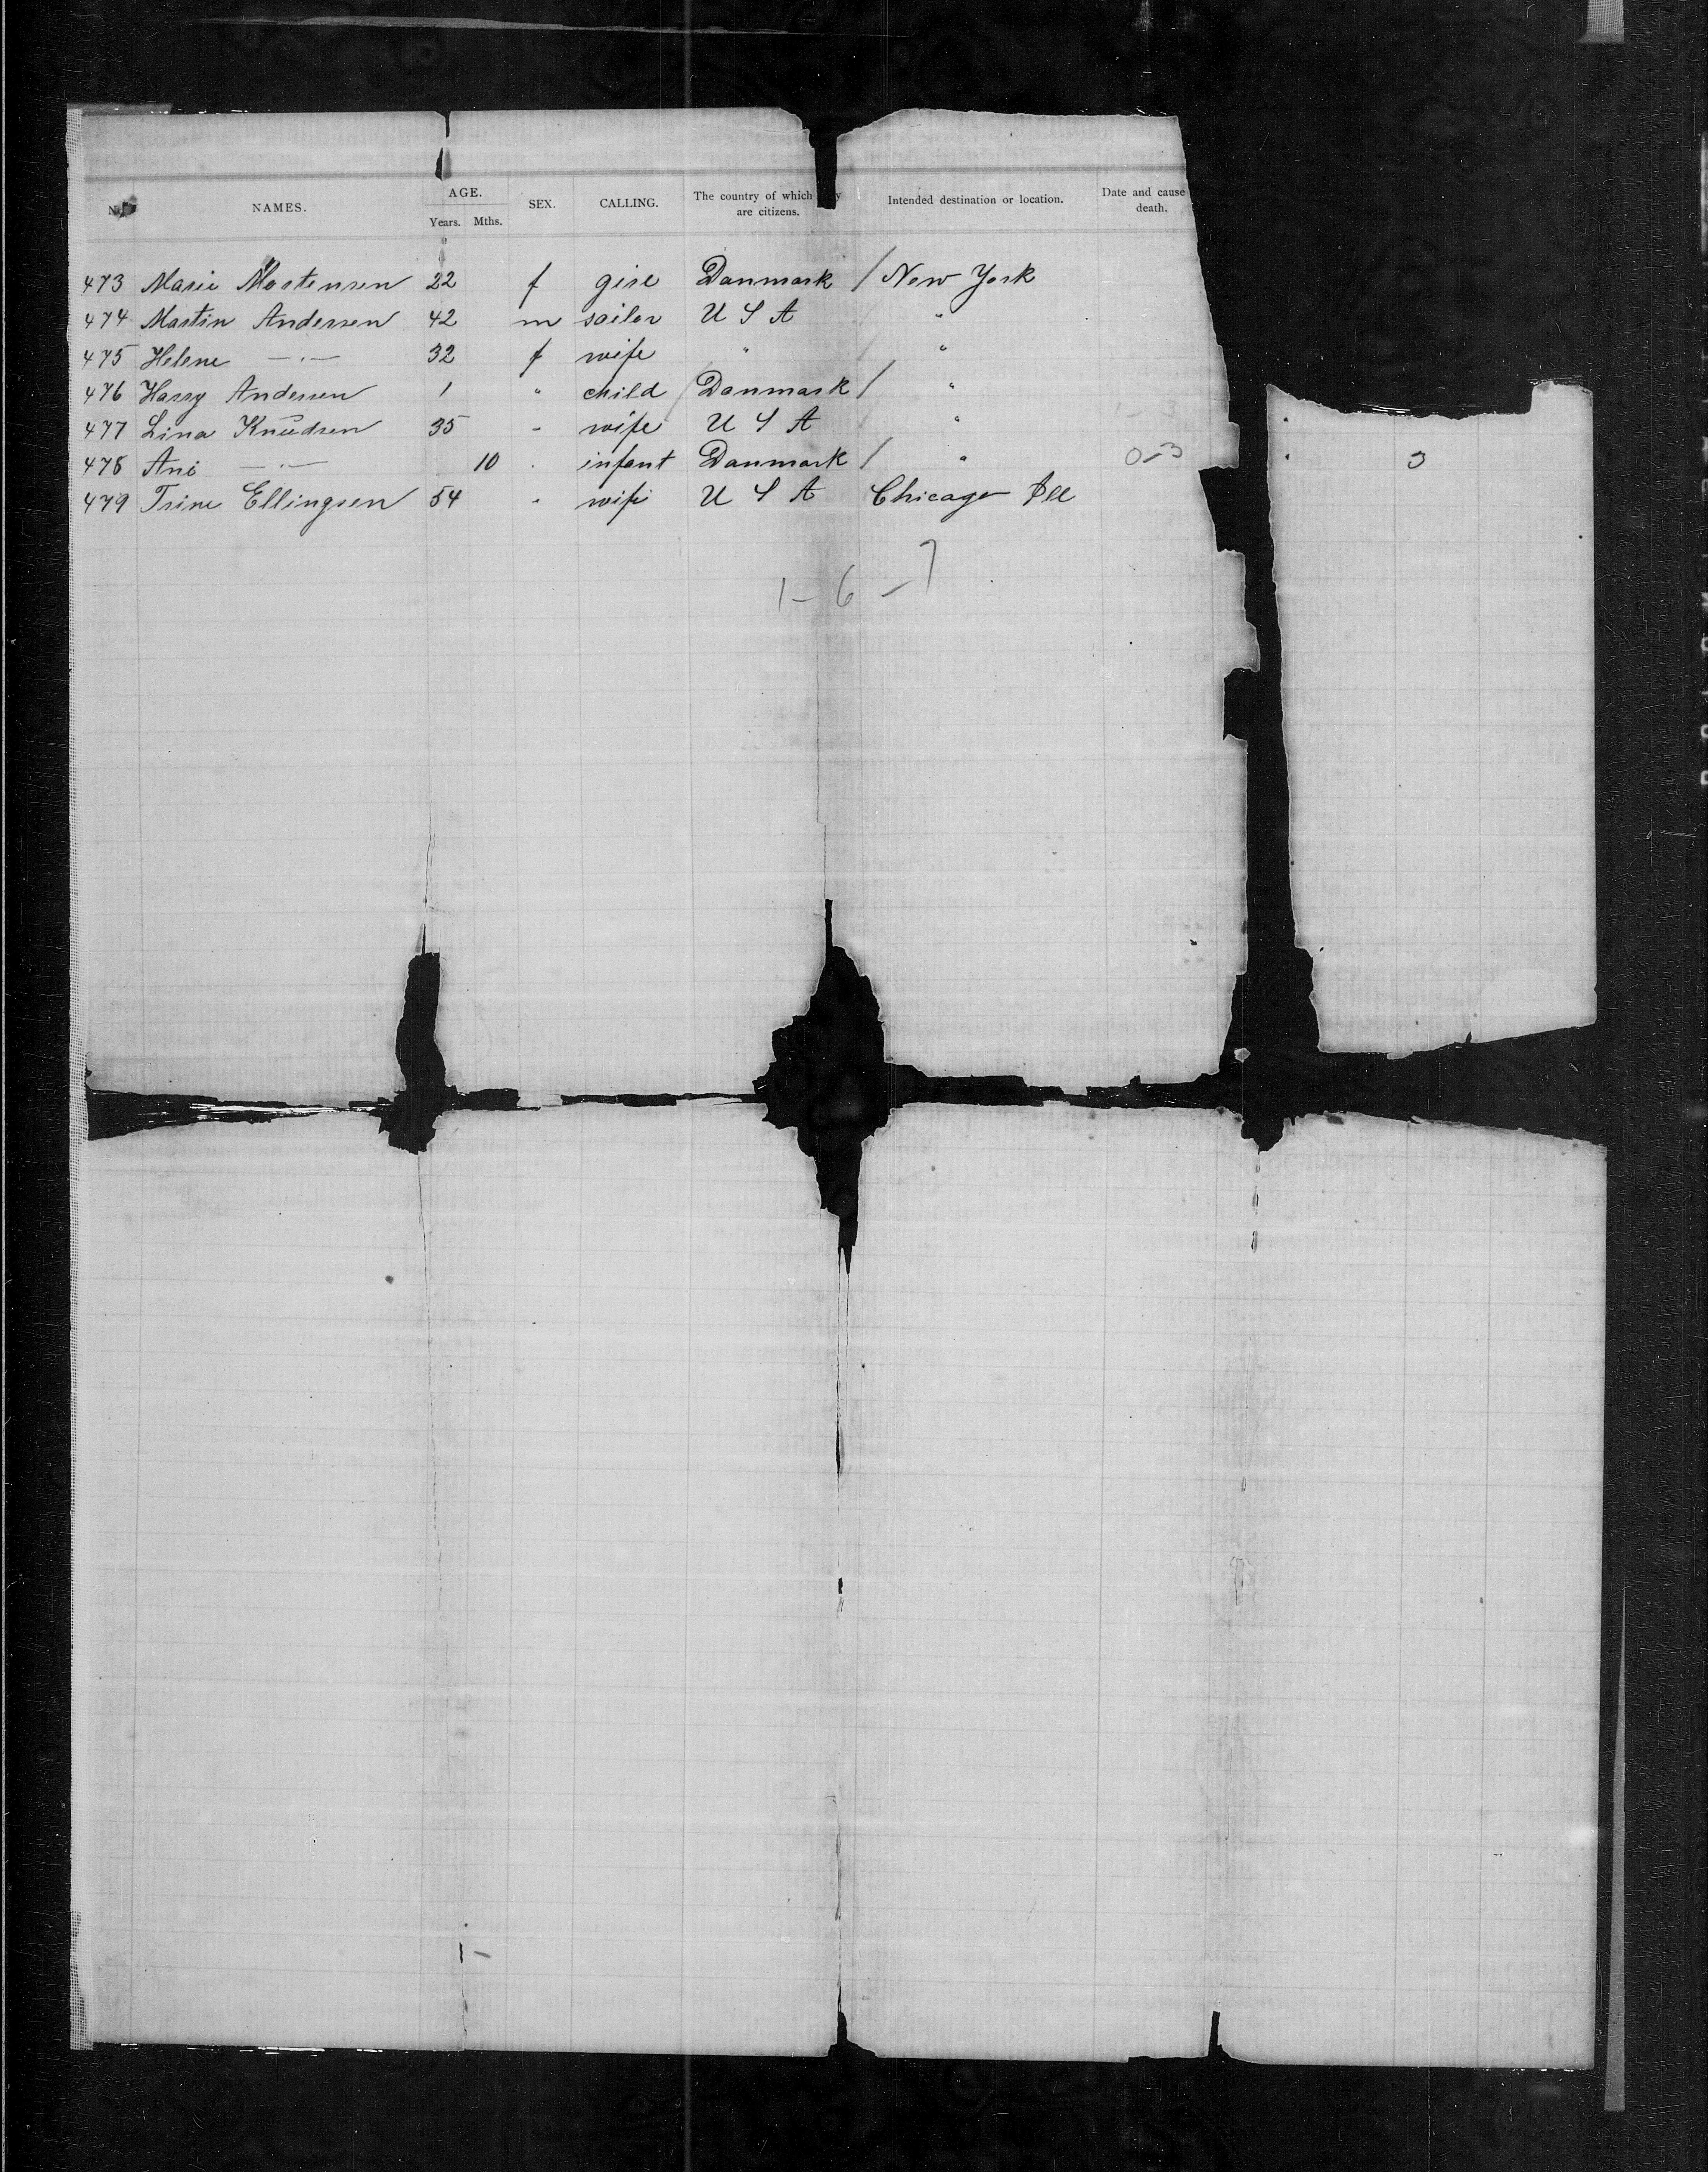 NAMES. AGE. SEX. CALLING. The country of which are citizens. Intended destination or location. Date and cause death.
Years. Mths.
473 Marie Mortensen 22 f girl Danmark / New York
474 Martin Andersen 42 m sailor U S A "
475 Helene —"— 32 f wife " "
476 Harry Andersen 1 " child Danmark / "
477 Lina Knudsen 35 " wife U S A "
478 Ani —"— 10 " infant Danmark / " 0-3 3
479 Trine Ellingsen 54 " wife U S A Chicago Ill
1-6-7
1-